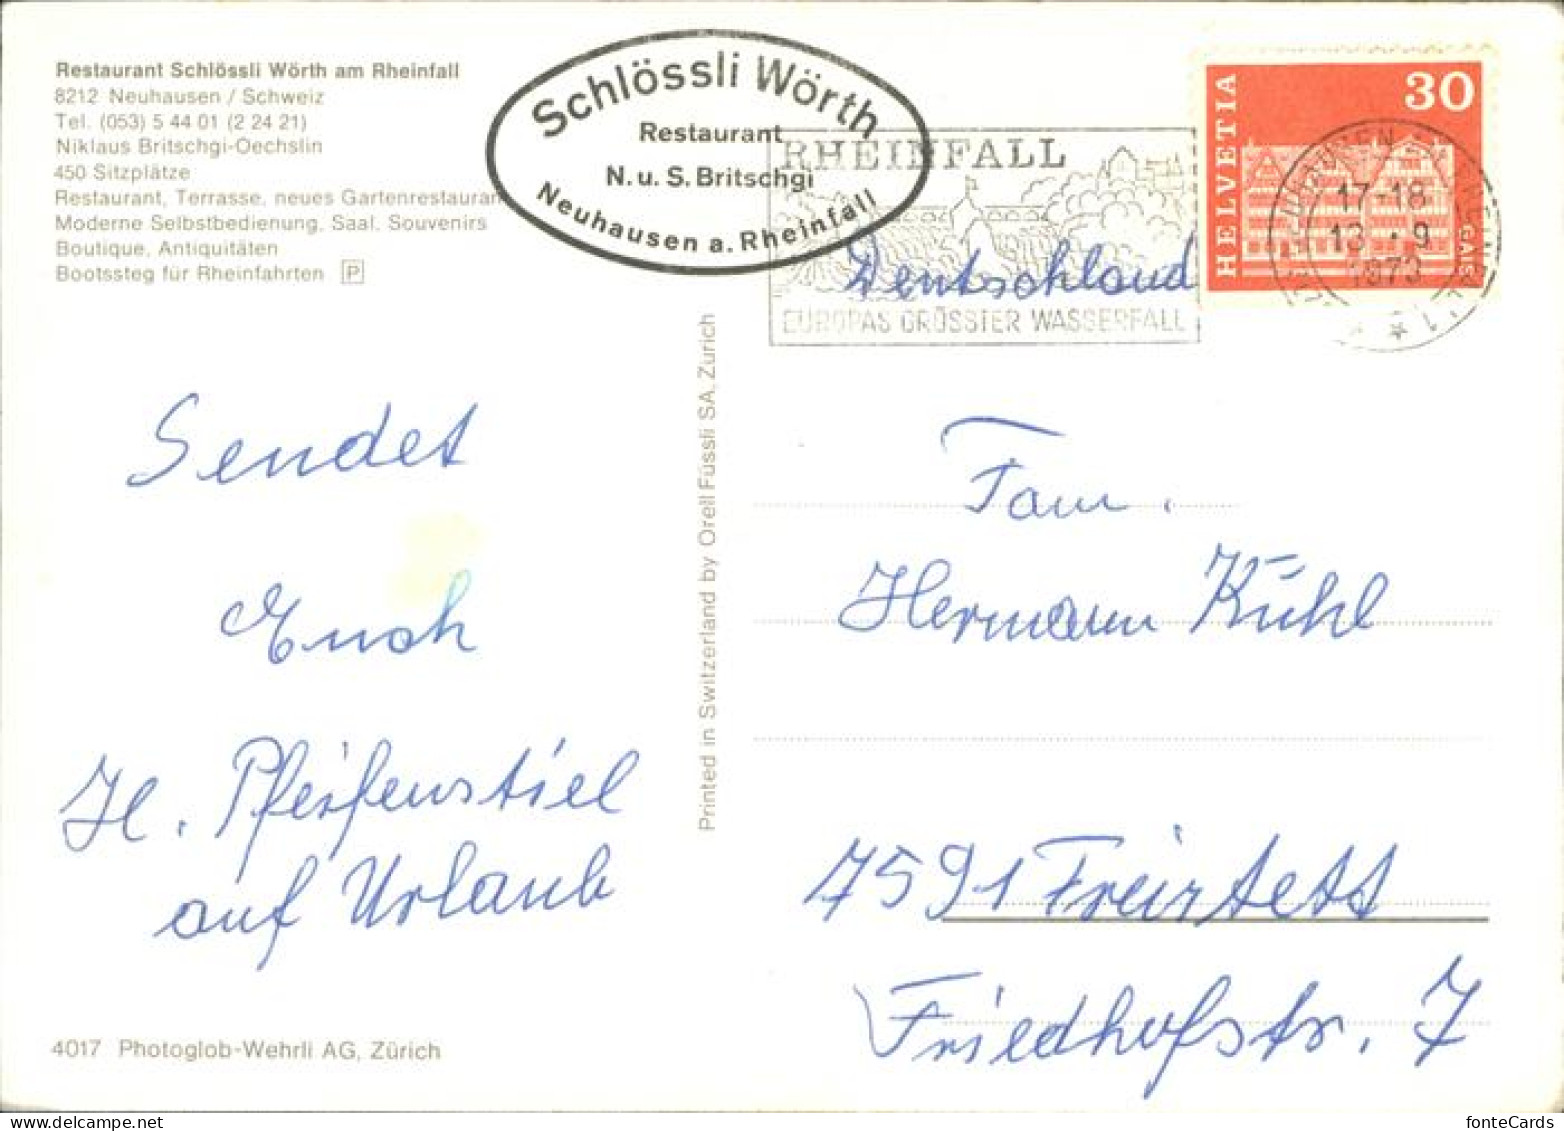 Restaurant Schlössli Wörth am Rheinfall
8212 Neuhausen / Schweiz
Tel. (053) 5 44 01 (2 24 21)
Niklaus Britschgi-Oechslin
450 Sitzplätze
Restaurant, Terrasse, neues Gartenrestauran
Moderne Selbstbedienung, Saal. Souvenirs
Boutique, Antiquitäten
Bootssteg für Rheinfahrten P
Schlössli Wörth
Restaurant
N. u. S. Britschgi
Neuhausen a. Rheinfall
RHEINFALL
EUROPAS GRÖSSTER WASSERFALL
Deutschland
HELVETIA
30
17-18
13 · 9
1973
Sendet
Euch
H. Pfeifenstiel
auf Urlaub
Printed in Switzerland by Orell Füssli SA, Zürich
Fam.
Hermann Kühl
7591 Freistett
Friedhofstr. 7
4017 Photoglob-Wehrli AG, Zürich
fonteCards